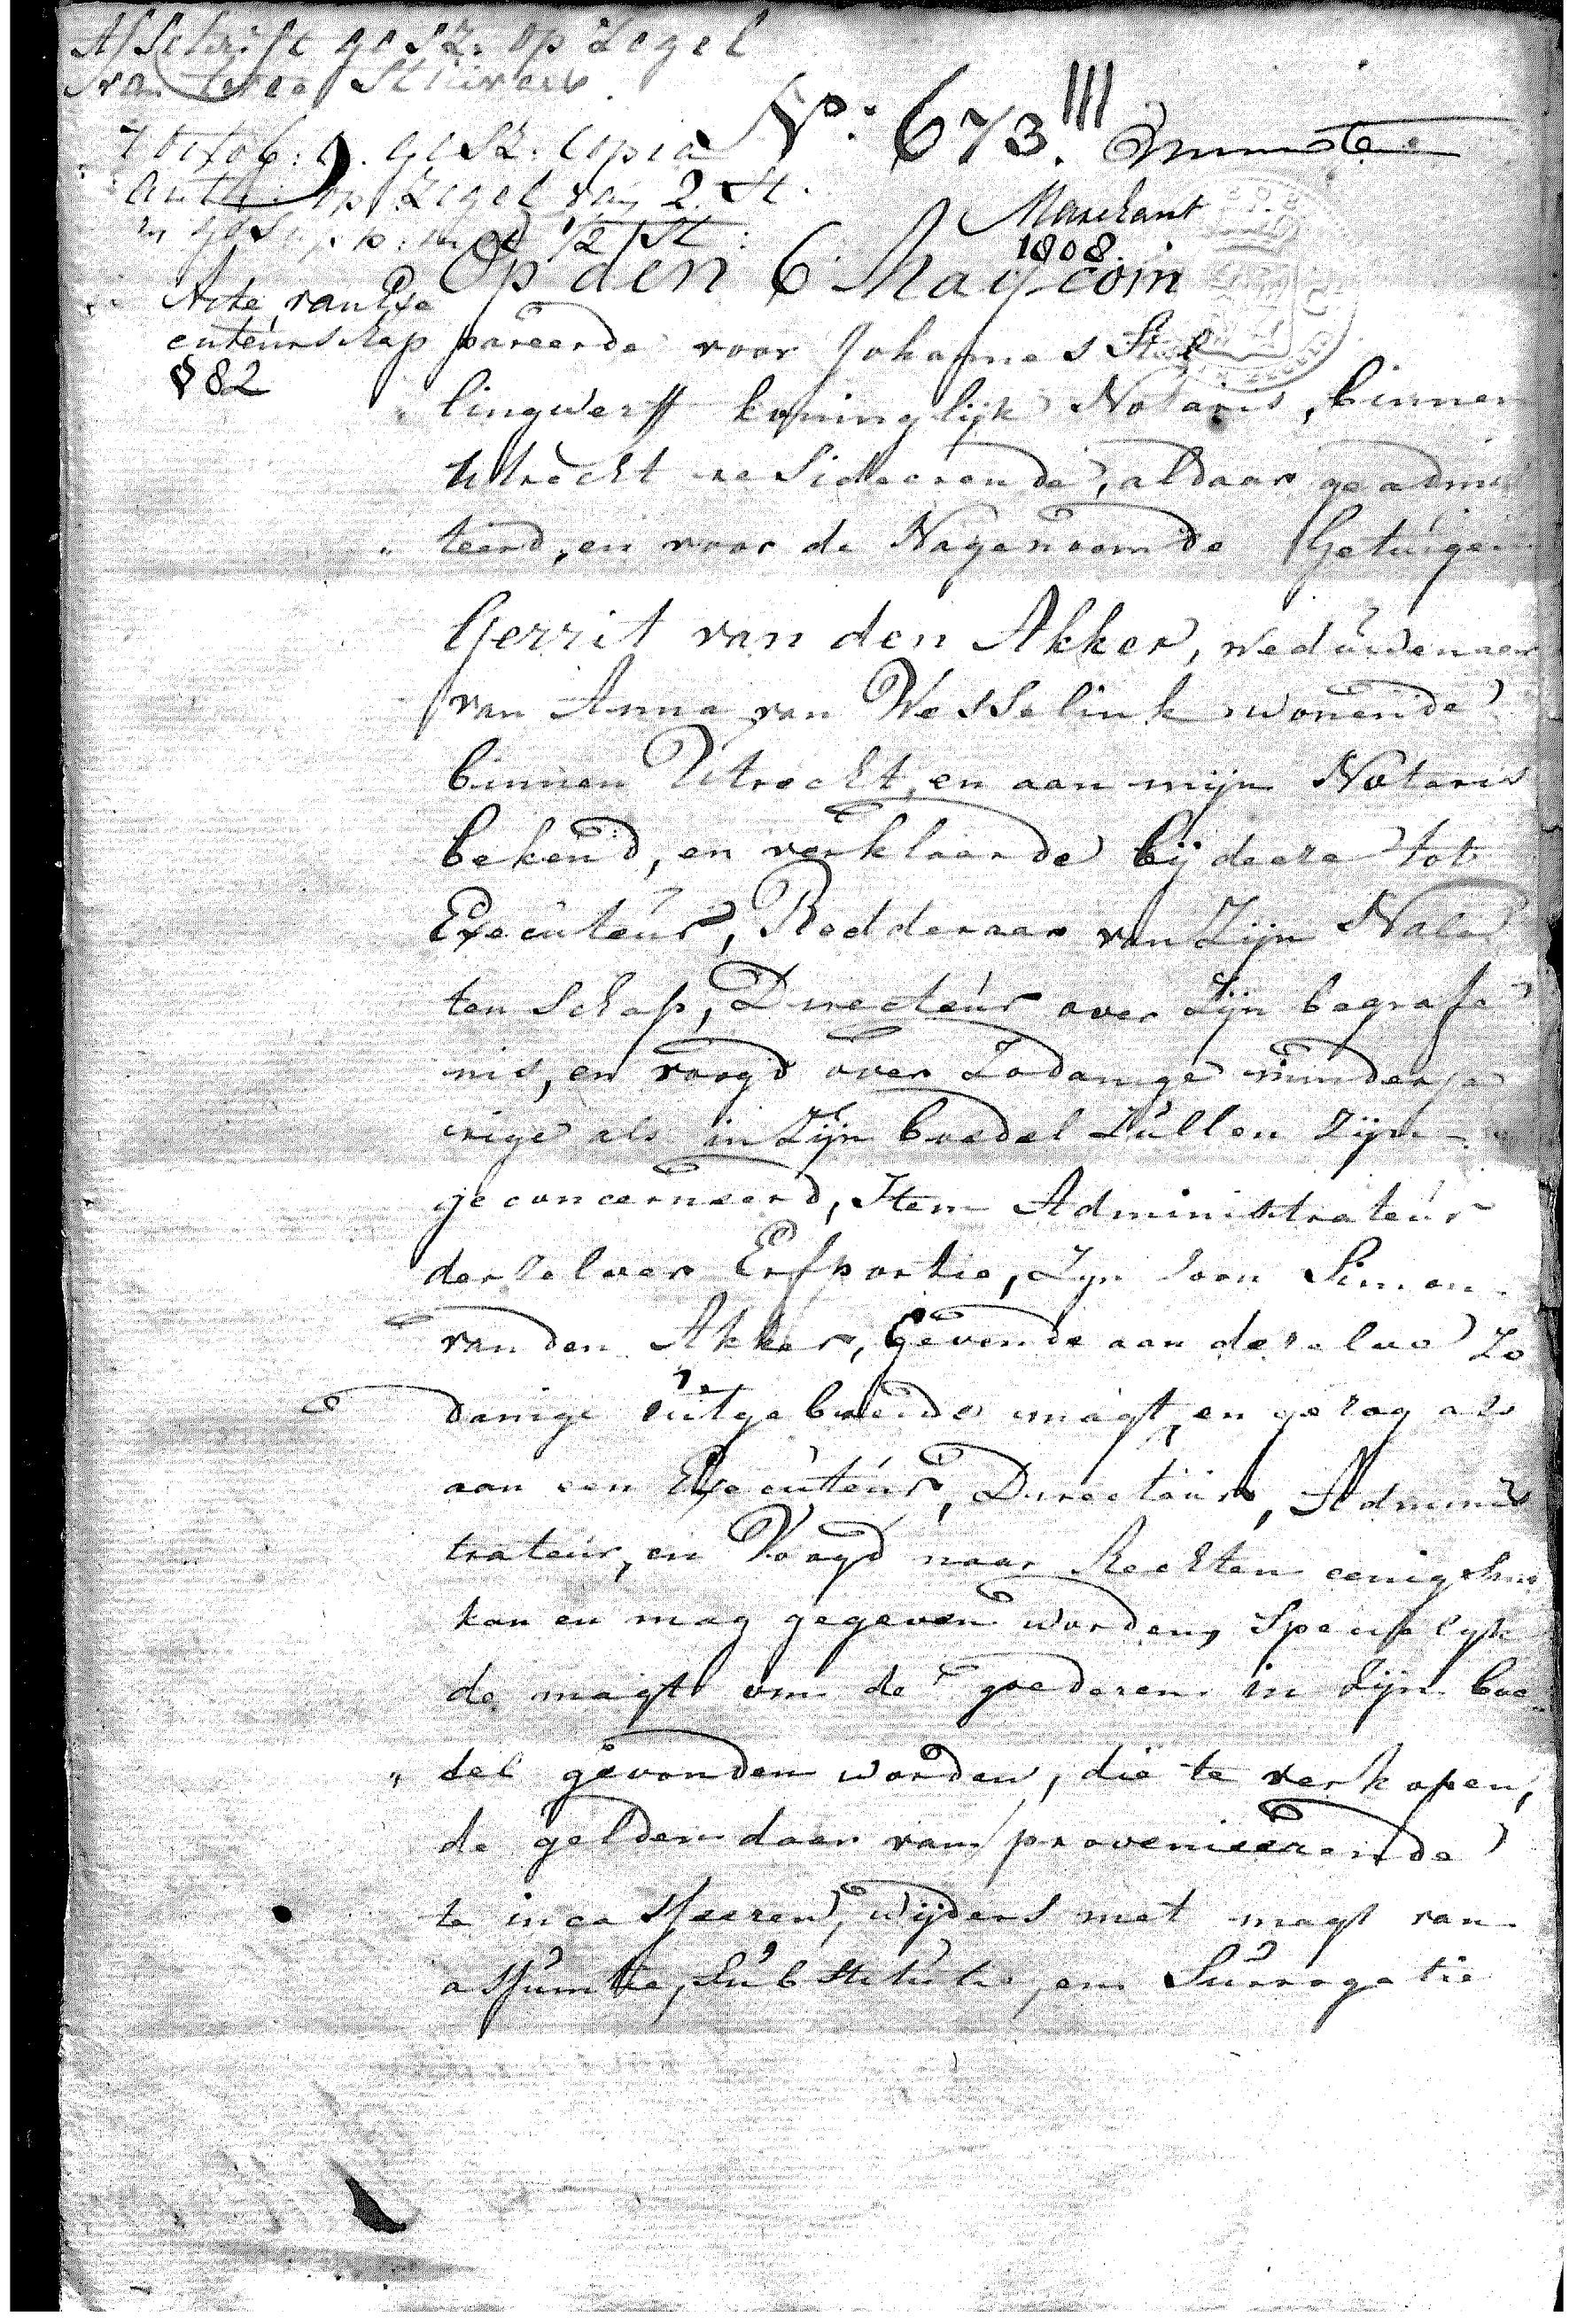 Afschrift gesz: op Zegel
van twee Stuivers.
No: 673. III
7 octob: gesz: Copia
auth: op Zegel van 2. St.
Marchant
1808.
Op den 6 May com
Acte van Exe
cuteurschap
§ 82
pareerde voor Johannes Stel
lingwerff koninglijk Notaris, binnen
Utrecht resideerende, aldaar geadmit
teerd, en voor de Nagenoemde Getuigen
Gerrit van den Akker, weduwenaar
van Anna van Wesselink wonende
binnen Utrecht, en aan mijn Notaris
bekend, en verklaarde bij deeze tot
Executeur, Redderaar van Zijn Nala
tenschap, Directeur over Zijn begrafe
nis, en voogd over Zodanige minderja
rige als in Zijn boedel Zullen Zijn
geconcerneerd, Item Administrateur
derzelver Erfportie, Zyn Soon Simon
van den Akker, Gevende aan dezelve Zo
danige uitgebreide magt, en gezag als
aan een Executeur, Directeur, Adminis
trateur, en Voogd naar Rechten eenigsins
kan en mag gegeven worden, Specialyk
de magt om de goederen in Zijn boe
del gevonden worden, die te verkopen,
de gelden daar van provenieerende
te incasseeren, wijders met magt van
assumtie, Substitutie, en Surrogatie